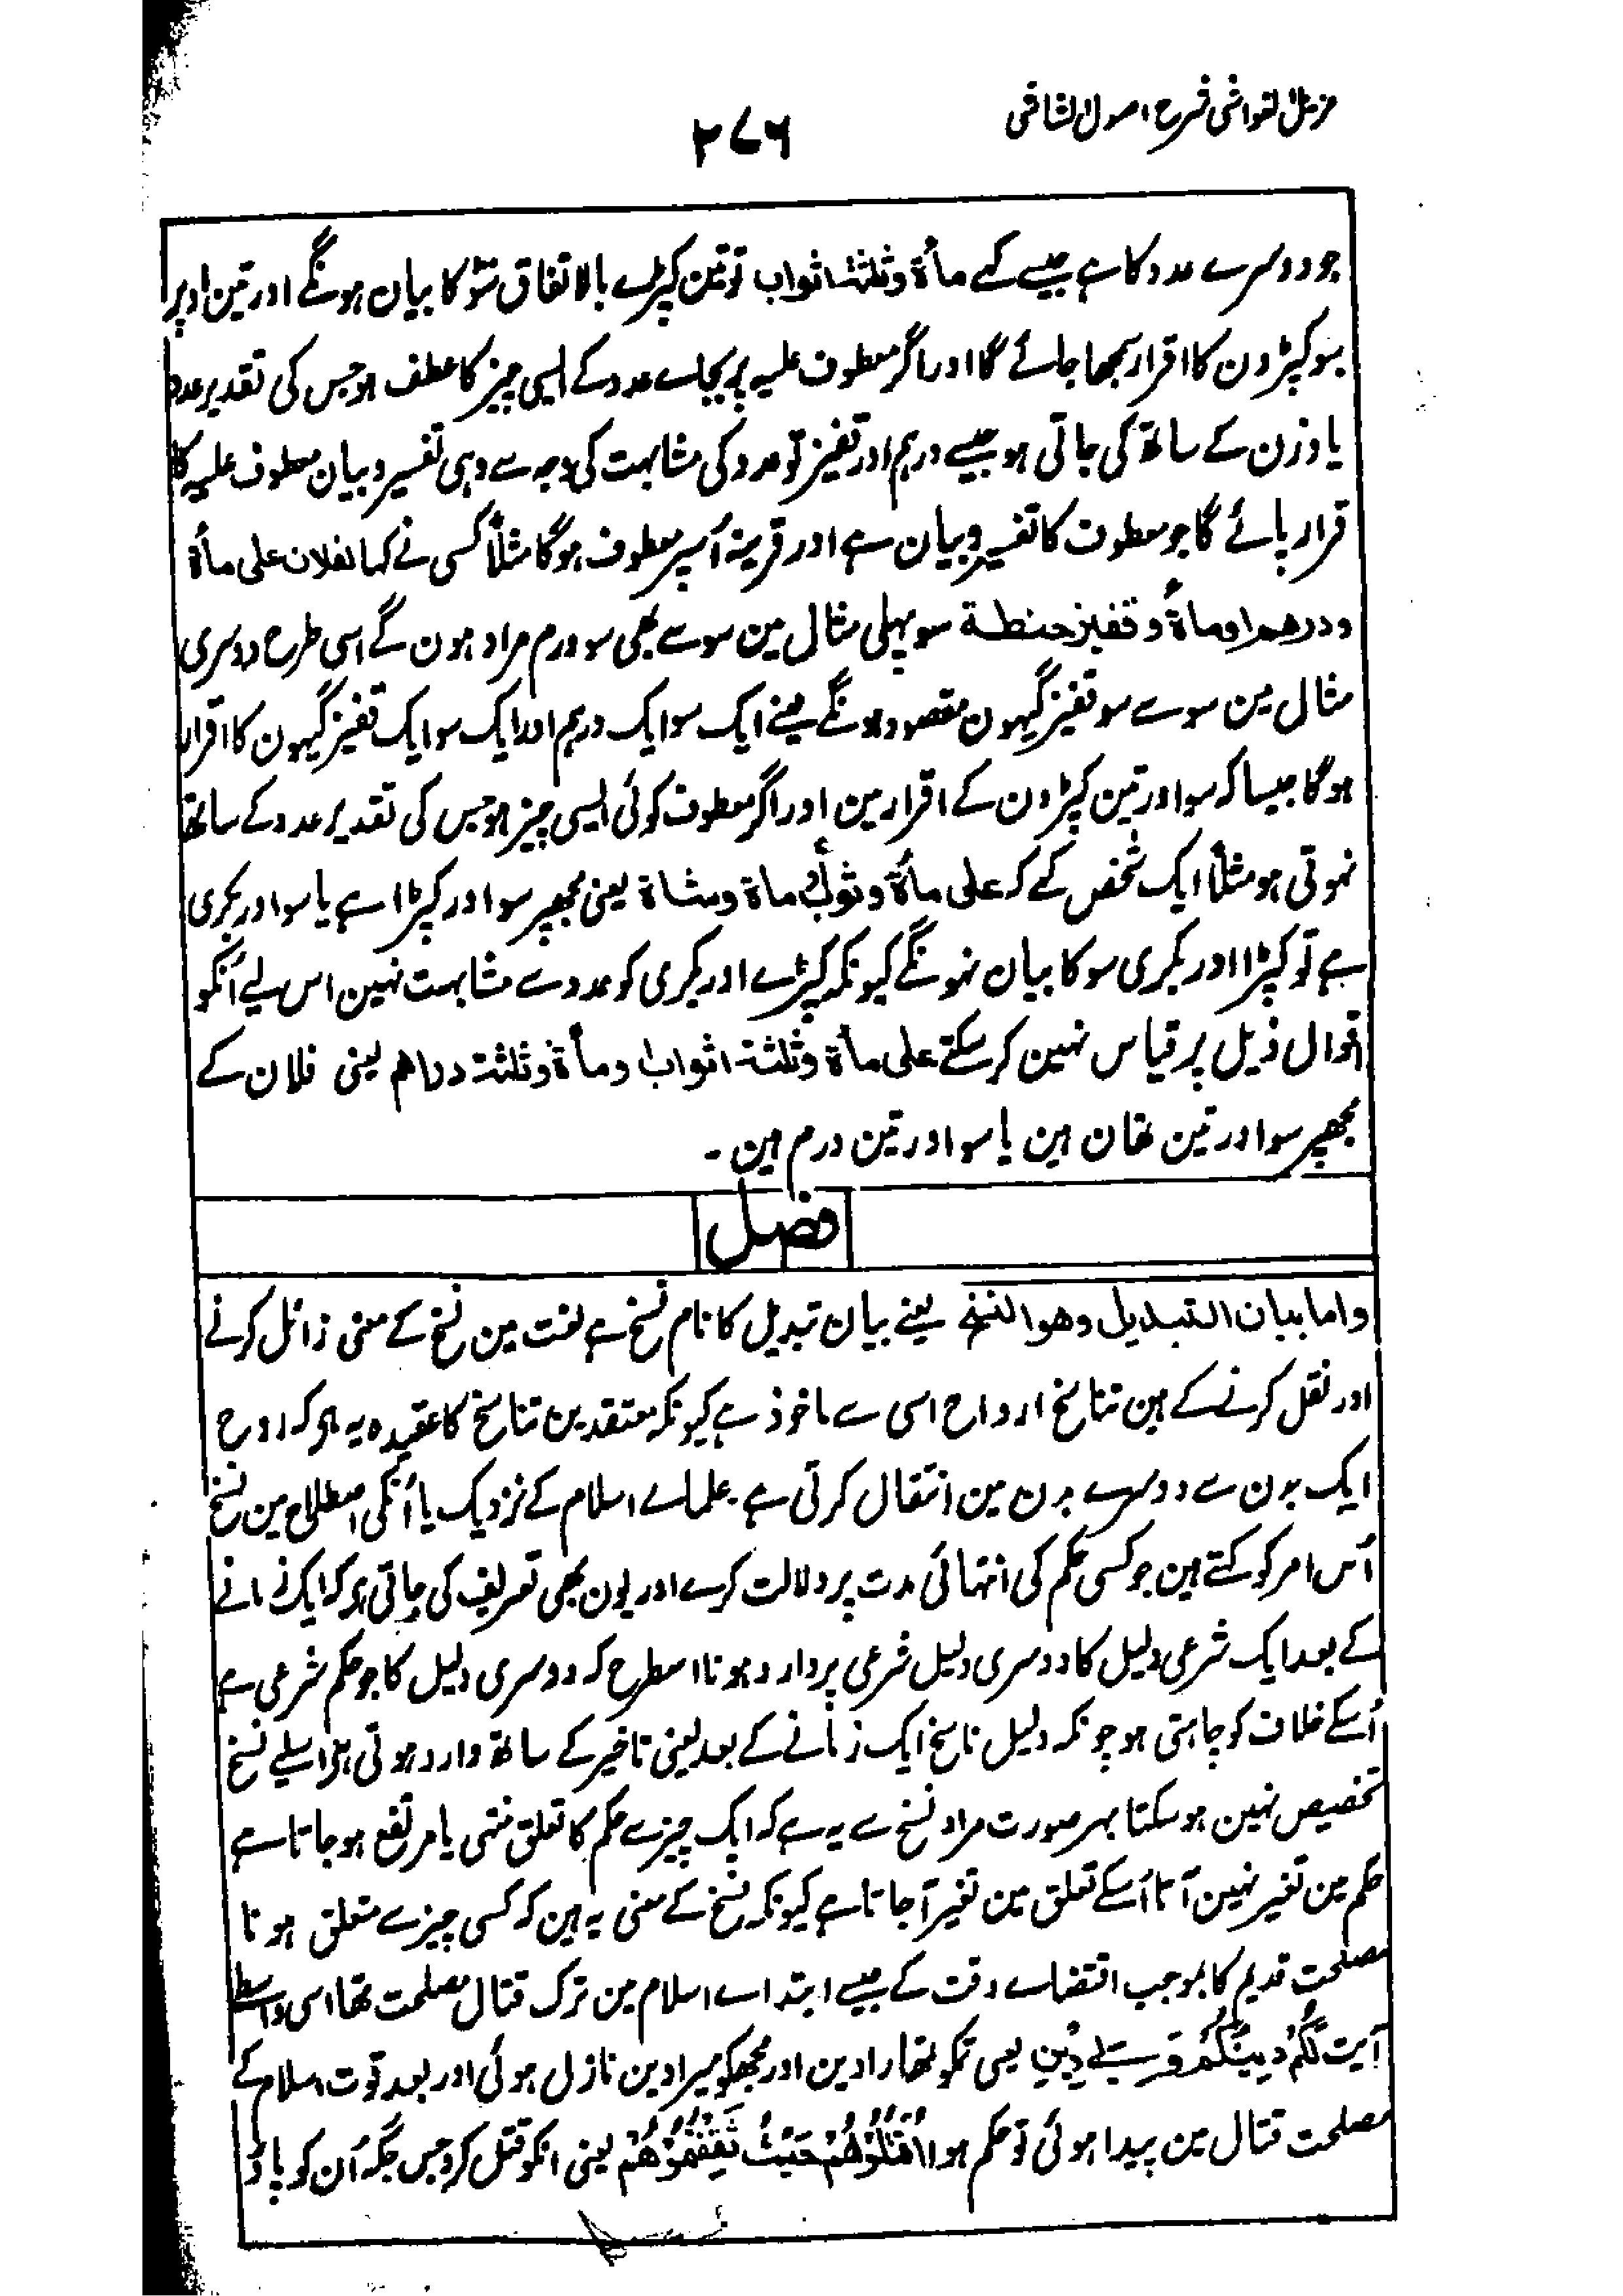 مزیل الغواشی شرح اصول الشاشی
۲۷۶
جو دوسرے عدد کا ہے جیسے کہے مأۃ وثلثۃ اثواب تو تین کپڑے بالاتفاق سَو کا بیان ہونگے اور تین اوپر
سو کپڑون کا اقرار سمجھا جائے گا اور اگر معطوف علیہ پر بجاے عدد کے ایسی چیز کا عطف ہو جس کی تقدیر عدد
یا وزن کے ساتھ کی جاتی ہو جیسے درہم اور قفیز تو عدد کی مشابہت کی وجہ سے وہی تفسیر و بیان معطوف علیہ کا
قرار پائے گا جو معطوف کا تفسیر و بیان ہے اور قرینہ اُسپر معطوف ہوگا مثلاً کسی نے کہا لفلان علی مأۃ
ودرھم او مأۃ وقفیز حنطۃ سو پہلی مثال مین سو سے بھی سو درم مراد ہون گے اسی طرح دوسری
مثال مین سو سے سو قفیز گیہون مقصود ہونگے یعنے ایک سو ایک درہم اور ایک سو ایک قفیز گیہون کا اقرار
ہوگا جیسا کہ سو اور تین کپڑون کے اقرار مین اور اگر معطوف کوئی ایسی چیز ہو جس کی تقدیر عدد کے ساتھ
نہوتی ہو مثلاً ایک شخص کہے کہ علی مأۃ وثوب او مأۃ وشاۃ یعنی مجھپر سو اور کپڑا ہے یا سو اور بکری
ہے تو کپڑا اور بکری سو کا بیان نہونگے کیونکہ کپڑے اور بکری کو عدد سے مشابہت نہین اس لیے اُنکو
اقوال ذیل پر قیاس نہین کرسکتے علی مأۃ وثلثۃ اثواب و مأۃ وثلثۃ دراھم یعنی فلان کے
مجھپر سو اور تین تھان ہین یا سو اور تین درم ہین ۔
فصل
واما بیان التبدیل وھو النسخ یعنے بیان تبدیل کا نام نسخ ہے لغت مین نسخ کے معنی زائل کرنے
اور نقل کرنے کے ہین تناسخ ارواح اسی سے ماخوذ ہے کیونکہ معتقدین تناسخ کا عقیدہ یہ ہو کہ روح
ایک بدن سے دوسرے بدن مین انتقال کرتی ہے ۔ علماے اسلام کے نزدیک یا اُنکی اصطلاح مین نسخ
اُس امر کو کہتے ہین جو کسی حکم کی انتہائی مدت پر دلالت کرے اور یون بھی تعریف کی جاتی ہو کہ ایک زمانے
کے بعد ایک شرعی دلیل کا دوسری دلیل شرعی پر وارد ہونا اسطرح کہ دوسری دلیل کا جو حکم شرعی ہے
اُسکے خلاف کو چاہتی ہو چونکہ دلیل ناسخ ایک زمانے کے بعد یعنی تاخیر کے ساتھ وارد ہوتی ہے اسلیے نسخ
تخصیص نہین ہوسکتا بہر صورت مراد نسخ سے یہ ہے کہ ایک چیز سے حکم کا تعلق منتہی یا مرتفع ہوجاتا ہے
حکم مین تغیر نہین آتا اُسکے تعلق مین تغیر آجاتا ہے کیونکہ نسخ کے معنی یہ ہین کہ کسی چیز سے متعلق ہونا
مصلحت قدیم کا بموجب اقتضاے وقت کے جیسے ابتداے اسلام مین ترک قتال مصلحت تھا اسی واسطے
آیت لَكُمْ دِينُكُمْ وَلِيَ دِينِ یعنی تمکو تمھارا دین اور مجھکو میرا دین نازل ہوئی اور بعد قوت اسلام کے
مصلحت قتال مین پیدا ہوئی تو حکم ہوا اُقْتُلُوْهُمْ حَيْثُ ثَقِفْتُمُوْهُمْ یعنی انکو قتل کرو جس جگہ اُن کو پاؤ